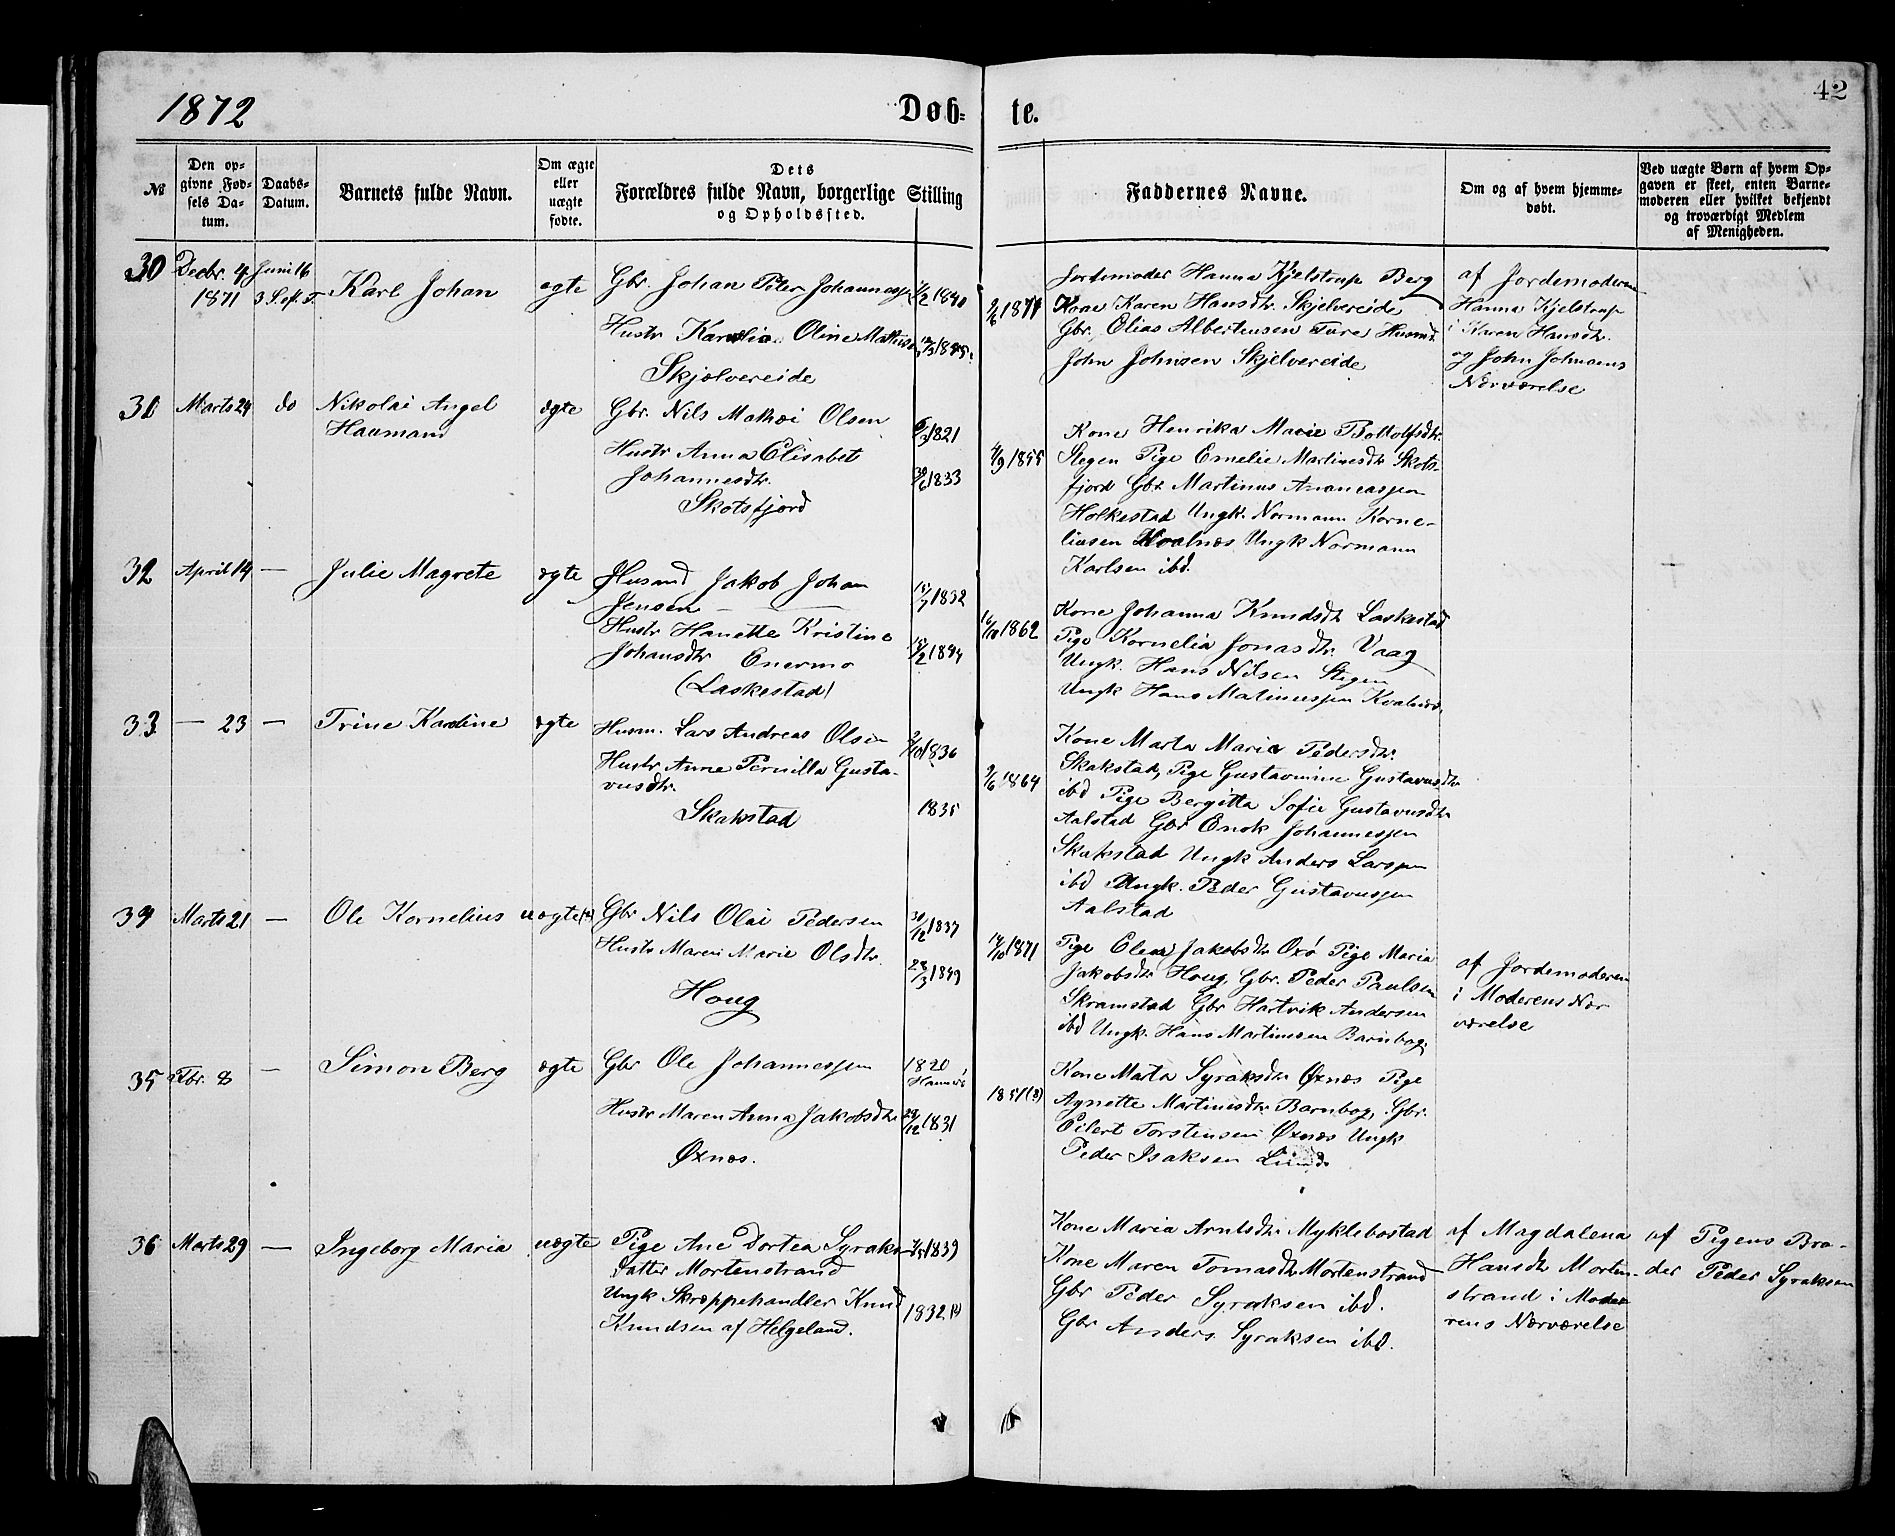 42
1872
Døb-
te.
№
Den op-
givne Fød-
sels Da-
tum.
Daabs-
Datum.
Barnets fulde Navn.
Om ægte
eller
uægte
fødte.
Dets
Forældres fulde Navn, borgerlige Stilling
og Opholdssted.
Faddernes Navne.
Om og af hvem hjemme-
døbt.
Ved uægte Børn af hvem Op-
gaven er skeet, enten Barne-
moderen eller hvilket bekjendt
og troværdigt Medlem
af Menigheden.
30
Decbr. 4
1871
Juni 16
3 S. ef. T.
Karl Johan
ægte
Gbr. Johan Peter Johannessen
1/2 1840
Hustr Oline
Skjelvereide
Jordemoder Hanna Kjelstrup Berg
Kone Karen Hansdtr Skjelvereide
Gbr. Elias Albertsen Husmd.
John Johnsen Skjelvereide
af Jordemoderen
Hanna Kjelstrup
i Karen Hansdtr.
og John Johnsens
Nærværelse
31
Marts 24
do
Nikolai Angel
Haamand
ægte
Gbr. Nils Mathæi Olsen
6/3 1821
Hustr Anna Elisabet
Johannesdtr.
30/6 1833
Skotsfjord
1855
Kone Henrika Marie Bottolfsdtr.
Stegen Pige Emelie Martinesdtr Skots-
fjord Gbr. Martinus
Holkestad Ungk. Normann Korne-
liusen Kvalnæs Ungk Normann
Karlsen ibd.
32
April 14
—
Julie Magrete
ægte
Husmd Jakob Johan
Jensen
15/7 1832
Hustr Hanette Kristine
Johansdtr Enermo
(Laskestad)
16/10 1862
Kone Johanna Knudsdtr Laskestad
Pige Kornelia Jonasdtr. Vaag
Ungk. Hans Nilsen Stegen
Ungk Hans Matinussen Kvalnæs
33
— 23
—
Trine Karoline
ægte
Husm. Lars Andreas Olsen
2/10 1836
Hustr Anne Pernilla Gusta-
vusdtr.
1835
Skakstad
9/6 1864
Kone Marta Maria Pedersdtr.
Skakstad, Pige Gustavmine Gustavusdtr
ibd Pige Bergitta Sofie Gustavusdtr
Aalstad Gbr Enok Johannessen
Skakstad Ungk Anders Larssen
ibd Ungk. Peder Gustavussen
Aalstad
34
Marts 21
—
Ole Kornelius
uægte
Gbr Nils Olai Pedersen
30/12 1837
Hustr Maren Marie Olsdtr.
Houg
14/10 1871
Pige Elen Jakobsdtr Oxö Pige Maria
Jakobsdtr Houg, Gbr. Peder Paulsen
Skramstad Gbr Hartvik Andersen
ibd Ungk. Hans Martinussen Barnbog.
af Jordemoderen
i Moderens Nær
værelse
35
Fbr. 8
—
Simon Berg
ægte
Gbr Ole Johannessen
1820
Hustr Maren Anna Jakobsdtr
29/12 1831
Øxnæs.
1851
Kone Marta Syraksdtr Øxnæs Pige
Agnette Martinesdtr Barnbog, Gbr.
Eilert Torstensen Øxnæs Ungk
Peder Isaksen Lund
36
Marts 29
—
Ingeborg Maria
uægte
Pige Ane Dortea Syraks-
datter Mortenstrand
1839
Ungk Skreppehandler Knud
Knudsen af Helgeland.
1832
Kone Maria Arntsdtr Myklebostad
Kone Maren Tomasdtr Mortenstrand
Gbr Peder Syraksen ibd.
Gbr Anders Syraksen ibd.
af Magdalena
Hansdtr Morten-
strand i Mode
rens Nærværelse
af Pigens Bro-
der Peder Syraksen